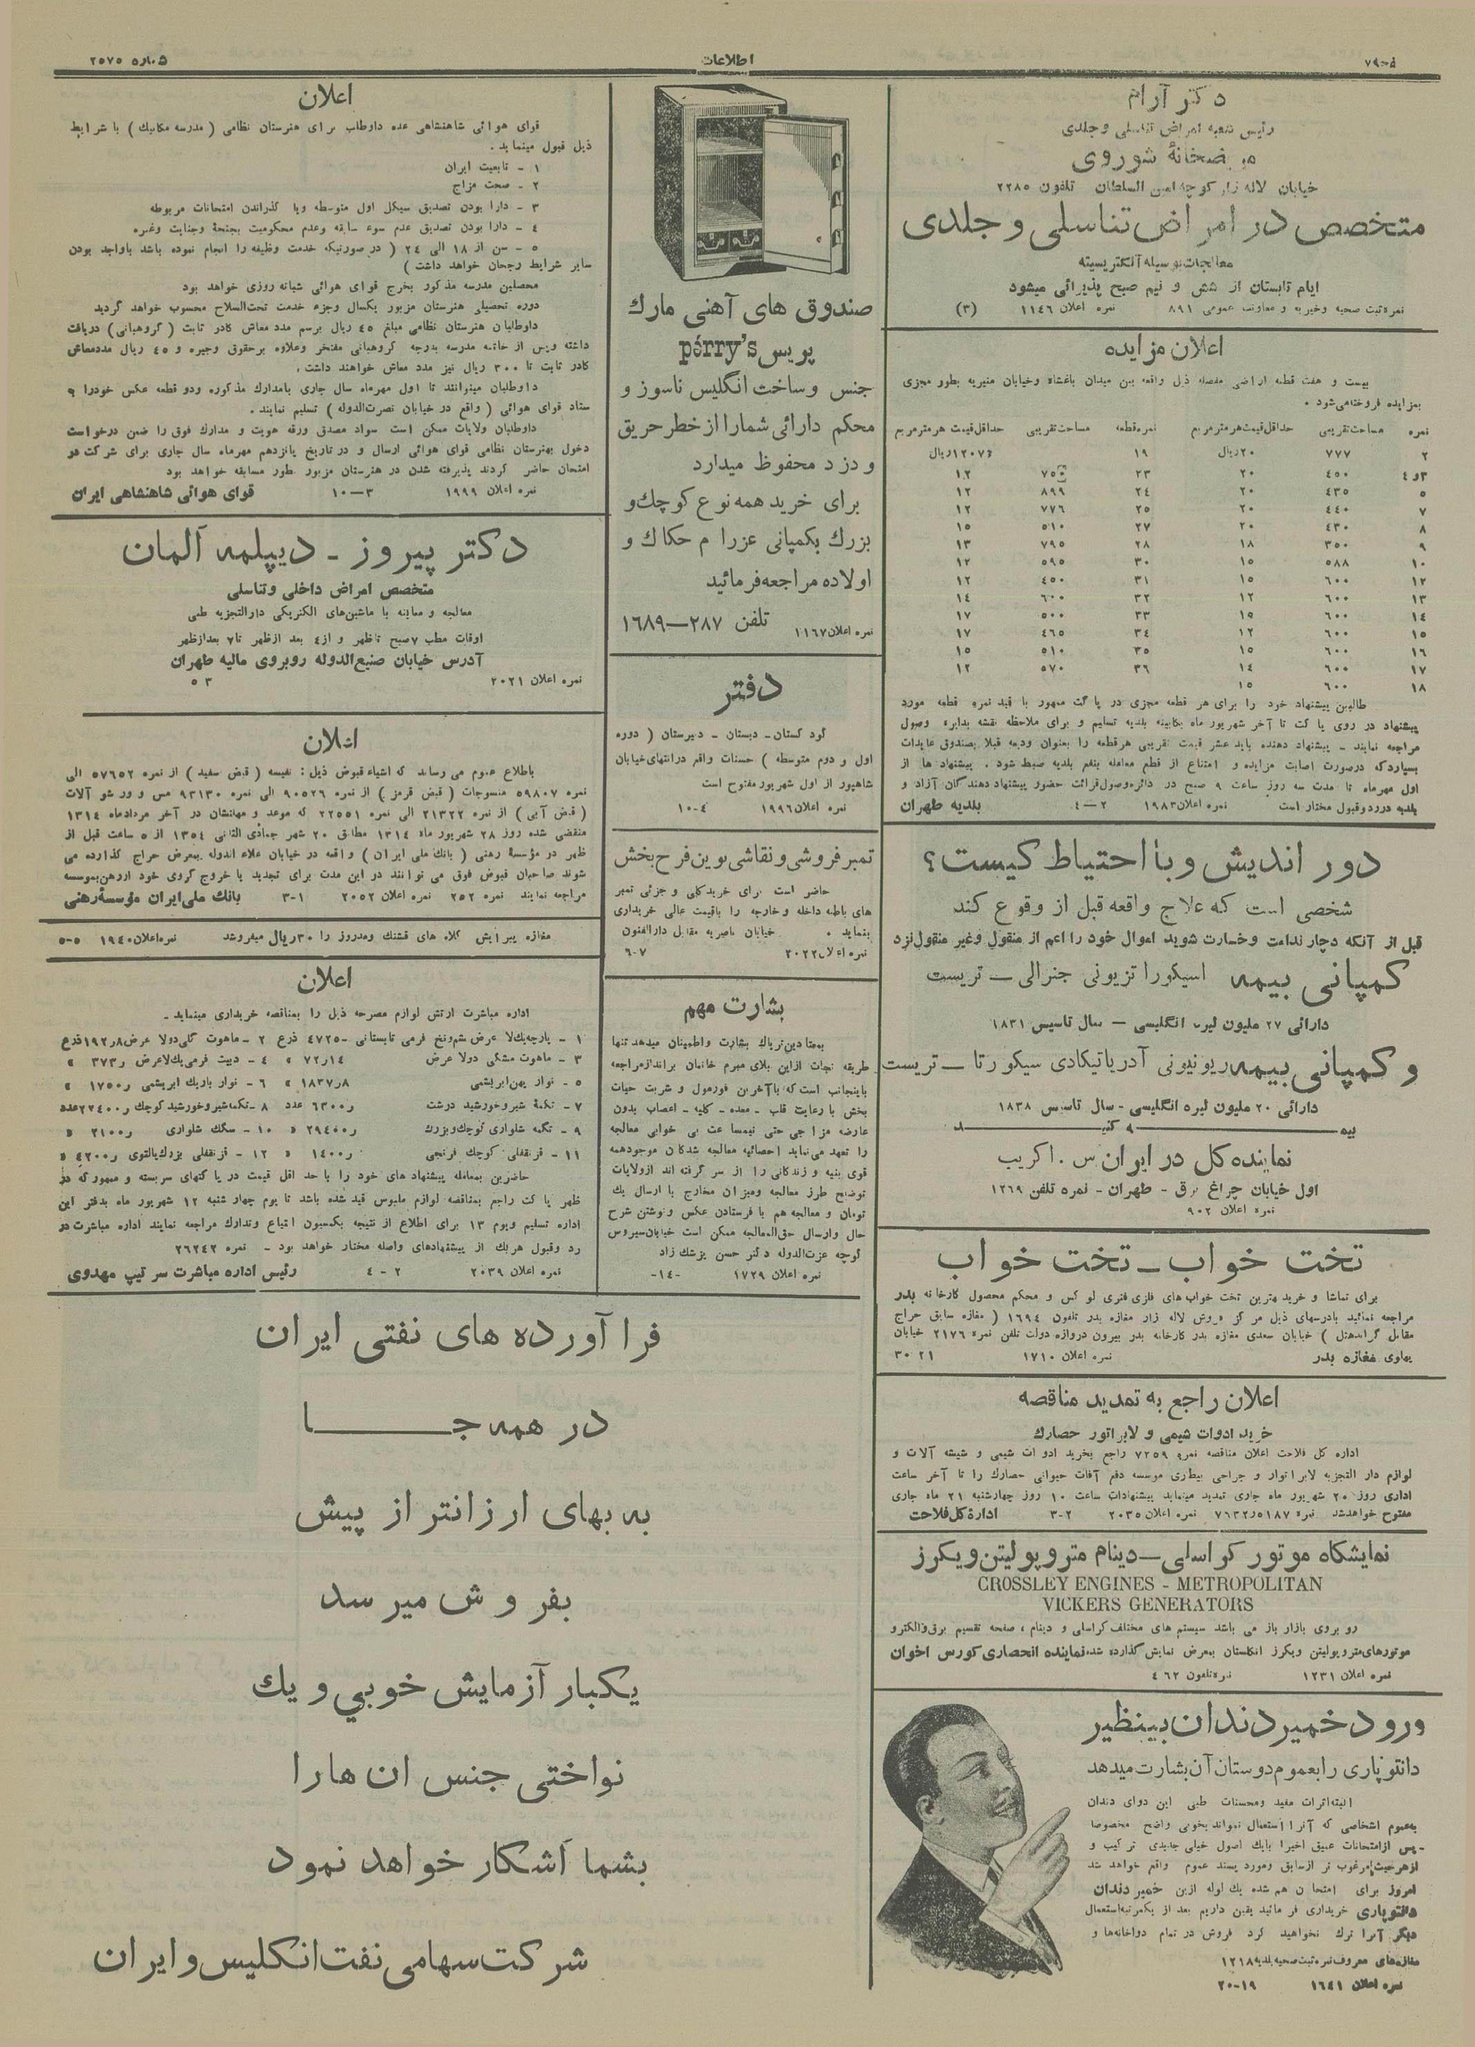 شماره ۲۵۷۵
اطلاعات
دکتر آرام
رئیس شعبه امراض تناسلی و جلدی
مریضخانهٔ شوروی
خیابان لاله‌زار کوچه امین السلطان تلفون ۲۲۸۵
متخصص در امراض تناسلی و جلدی
معالجات بوسیله الکتریسیته
ایام تابستان از شش و نیم صبح پذیرائی میشود
نمره ثبت صحیه و خیریه و معاونت عمومی ۸۹۱ نمره اعلان ۱۱۴۶ (۳)
اعلان مزایده
بیست و هفت قطعه اراضی مفصله ذیل واقعه بین میدان باغشاه و خیابان منیریه بطور مجزی
بمزایده فروخته می‌شود .
نمره مساحت تقریبی حداقل قیمت هر متر مربع نمره قطعه مساحت تقریبی حداقل قیمت هر متر مربع
۲ ۷۷۷ ۲۰ ریال ۱۹ ۱۲ ریال
۳و٤ ٤٥٠ ۲۰ ۲۳ ۷٥۰ ۱۲
٥ ٤۳٥ ۲۰ ۲٤ ۸۹۹ ۱۲
۷ ٤٤۰ ۲۰ ۲٥ ۷۷٦ ۱۲
۸ ٤۳۰ ۲۰ ۲۷ ٥۱۰ ۱٥
۹ ۳٥۰ ۱۸ ۲۸ ۷۹٥ ۱۳
۱۰ ٥۸۸ ۱٥ ۳۰ ٥۹٥ ۱۲
۱۲ ٦۰۰ ۱٥ ۳۱ ٤٥۰ ۱۲
۱۳ ٦۰۰ ۱۲ ۳۲ ٦۰۰ ۱٤
۱٤ ٦۰۰ ۱٥ ۳۳ ٥۰۰ ۱۷
۱٥ ٦۰۰ ۱۲ ۳٤ ٤٦٥ ۱۷
۱٦ ٦۰۰ ۱٥ ۳٥ ٥۱۰ ۱٥
۱۷ ٦۰۰ ۱٤ ۳٦ ٥۷۰ ۱۲
۱۸ ٦۰۰ ۱٥
طالبین پیشنهاد خود را برای هر قطعه مجزی در پاکت ممهور با قید نمره قطعه مورد
پیشنهاد در روی پاکت تا آخر شهریور ماه بکابینه بلدیه تسلیم و برای ملاحظه نقشه بدایره وصول
مراجعه نمایند – پیشنهاد دهنده باید عشر قیمت تقریبی هر قطعه را بعنوان ودیعه قبلا بصندوق عایدات
بسپارد که درصورت اصابت مزایده و امتناع از قطع معامله بنفع بلدیه ضبط شود . پیشنهاد ها از
اول مهرماه تا مدت سه روز ساعت ۹ صبح در دائره وصول قرائت حضور پیشنهاد دهندگان آزاد و
بلدیه در رد و قبول مختار است نمره اعلان ۱۹۸۳ ۲–٤ بلدیه طهران
دور اندیش و با احتیاط کیست؟
شخصی است که علاج واقعه قبل از وقوع کند
قبل از آنکه دچار ندامت و خسارت شوید اموال خود را اعم از منقول و غیر منقول نزد
کمپانی بیمه اسیکورا تزیونی جنرالی – تریست
دارائی ۲۷ ملیون لیره انگلیسی – سال تاسیس ۱۸۳۱
و کمپانی بیمه ریونیونی آدریاتیکادی سیکورتا – تریست
دارائی ۲۰ ملیون لیره انگلیسی - سال تاسیس ۱۸۳۸
بیمه کنید
نماینده کل در ایران س . اکریب
اول خیابان چراغ برق - طهران - نمره تلفن ۱۲٦۹
نمره اعلان ۹۰۲
تخت خواب – تخت خواب
برای تماشا و خرید بهترین تخت خواب‌های فلزی فنری لوکس و محکم محصول کارخانه بدر
مراجعه نمائید بادرسهای ذیل مرکز فروش لاله زار مغازه بدر تلفون ۱٦۹٤ ( مغازه سابق حراج
مقابل گراندهتل ) خیابان سعدی مغازه بدر کارخانه بدر بیرون دروازه دولت تلفن نمره ۲۱۷٦ خیابان
پهلوی مغازه بدر نمره اعلان ۱۷۱۰ ۲۱ ۳۰
اعلان راجع به تمدید مناقصه
خرید ادوات شیمی و لابراتور حصارك
اداره کل فلاحت اعلان مناقصه نمره ۷۲٥۹ راجع بخرید ادوات شیمی و شیشه آلات و
لوازم دار التجزیه لابراتوار و جراحی بیطاری موسسه دفع آفات حیوانی حصارك را تا آخر ساعت
اداری روز ۲۰ شهریور ماه جاری تمدید مینماید پیشنهادات ساعت ۱۰ روز چهارشنبه ۲۱ ماه جاری
مفتوح خواهد شد نمره ۷٦۳۲ر٥۱۸۷ نمره اعلان ۲۰۳٥ ۲-۳ اداره کل فلاحت
نمایشگاه موتور کراسلی – دینام متروپولیتن ویکرز
CROSSLEY ENGINES - METROPOLITAN
VICKERS GENERATORS
رو بروی بازار باز می باشد سیستم های مختلف کراسلی و دینام ، صفحه تقسیم برق و الکترو
موتورهای متروپولیتن ویکرز انگلستان بمعرض نمایش گذارده شده نماینده انحصاری کورس اخوان
نمره اعلان ۱۲۳۱ نمره تلفون ٤٦۲
ورود خمیر دندان بینظیر
دانتوپاری را بعموم دوستان آن بشارت میدهد
البته اثرات مفید و محسنات طبی این دوای دندان
بعموم اشخاصی که آنرا استعمال نموده‌اند بخوبی واضح مخصوصا
پس از امتحانات عمیق اخیرا بایك اصول خیلی جدیدی ترکیب و
از هر حیث مرغوب تر از سابق و مورد پسند عموم واقع خواهد شد
امروز برای امتحان هم شده یك لوله ازین خمیر دندان
دانتوپاری خریداری فرمائید یقین داریم بعد از یکمرتبه استعمال
دیگر آنرا ترك نخواهید کرد فروش در تمام دواخانه‌ها و
مغازه‌های معروف نمره ثبت صحیه بلدیه ۱۲۱۸
نمره اعلان ۱٦٤۱ ۱۹-۲۰
صندوق های آهنی مارك
پریس pérry's
جنس و ساخت انگلیس ناسوز و
محکم دارائی شما را از خطر حریق
و دزد محفوظ میدارد
برای خرید همه نوع کوچك و
بزرك بکمپانی عزرا م حکاك و
اولاده مراجعه فرمائید
تلفن ۲۸۷ – ۱٦۸۹ نمره اعلان ۱۱٦۷
دفتر
کودکستان - دبستان - دبیرستان ( دوره
اول و دوم متوسطه ) حسنات واقع در انتهای خیابان
شاهپور از اول شهریور مفتوح است
نمره اعلان ۱۹۹٦ ٤-۱۰
تمبر فروشی و نقاشی نوین فرح بخش
حاضر است برای خرید کلی و جزئی تمبر
های باطله داخله و خارجه را باقیمت عالی خریداری
بنماید . خیابان ناصریه مقابل دارالفنون
نمره اعلان ۲۰۲۲ ۷-٦
بشارت مهم
بمعتادین تریاك بشارت و اطمینان میدهد تنها
طریقه نجات ازاین بلای مبرم خانمان برانداز مراجعه
باینجانب است که با آخرین فورمول و شربت حیات
بخش با رعایت قلب - معده - کلیه - اعصاب بدون
عارضه مزاجی حتی نیمساعت بی خوابی معالجه
را تعهد می‌نماید احصائیه معالجه شدگان موجود همه
قوی بنیه و زندگانی را از سر گرفته اند از ولایات
توضیح طرز معالجه و میزان مخارج با ارسال یك
تومان و معالجه هم با فرستادن عکس و نوشتن شرح
حال و ارسال حق‌المعالجه ممکن است خیابان سیروس
کوچه عزت‌الدوله دکتر حسن پزشك زاد
نمره اعلان ۱۷۲۹ -۱٤-
اعلان
قوای هوائی شاهنشاهی عده داوطلب برای هنرستان نظامی ( مدرسه مکانیك ) با شرایط
ذیل قبول مینماید .
۱ - تابعیت ایران
۲ - صحت مزاج
۳ - دارا بودن تصدیق سیکل اول متوسطه ویا گذراندن امتحانات مربوطه
٤ - دارا بودن تصدیق عدم سوء سابقه وعدم محکومیت بجنحه وجنایت وغیره
٥ - سن از ۱۸ الی ۲٤ ( در صورتیکه خدمت وظیفه را انجام نموده باشد باواجد بودن
سایر شرایط رجحان خواهد داشت )
محصلین مدرسه مذکور بخرج قوای هوائی شبانه روزی خواهد بود
دوره تحصیلی هنرستان مزبور یکسال وجزء خدمت تحت‌السلاح محسوب خواهد گردید
داوطلبان هنرستان نظامی مبلغ ٤٥ ریال برسم مدد معاش کادر ثابت ( گروهبانی ) دریافت
داشته وپس از خاتمه مدرسه بدرجه گروهبانی مفتخر وعلاوه برحقوق وجیره و ٤٥ ریال مددمعاش
کادر ثابت تا ۳۰۰ ریال نیز مدد معاش خواهند داشت.
داوطلبان میتوانند تا اول مهرماه سال جاری بامدارك مذکوره ودو قطعه عکس خودرا به
ستاد قوای هوائی ( واقع در خیابان نصرت‌الدوله ) تسلیم نمایند.
داوطلبان ولایات ممکن است سواد مصدق ورقه هویت و مدارك فوق را ضمن درخواست
دخول بهنرستان نظامی قوای هوائی ارسال و در تاریخ پانزدهم مهرماه سال جاری برای شرکت در
امتحان حاضر گردند پذیرفته شدن در هنرستان مزبور بطور مسابقه خواهد بود
نمره اعلان ۱۹۹۹ ۳–۱۰ قوای هوائی شاهنشاهی ایران
دکتر پیروز - دیپلمه آلمان
متخصص امراض داخلی وتناسلی
معالجه و معاینه با ماشین‌های الکتریکی دارالتجزیه طبی
اوقات مطب ۷صبح تاظهر و از٤ بعد ازظهر تا۷ بعدازظهر
آدرس خیابان صنیع‌الدوله روبروی مالیه طهران
نمره اعلان ۲۰۲۱ ۳ ٥
اعلان
باطلاع عموم می رساند که اشیاء قبوض ذیل: نفیسه ( قبض سفید ) از نمره ٥۷٦٥۲ الی
نمره ٥۹۸۰۷ منسوجات ( قبض قرمز ) از نمره ۹۰٥۲٦ الی نمره ۹۳۱۳۰ مس و ورشو آلات
( قبض آبی ) از نمره ۲۱۳۲۲ الی نمره ۲۲٥٥۱ که موعد و مهلتشان در آخر مردادماه ۱۳۱٤
منقضی شده روز ۲۸ شهریور ماه ۱۳۱٤ مطابق ۲۰ شهر جمادی الثانی ۱۳٥٤ از ٥ ساعت قبل از
ظهر در مؤسسه رهنی ( بانك ملی ایران ) واقعه در خیابان علاء الدوله بمعرض حراج گذارده می
شوند صاحبان قبوض فوق می توانند در این مدت برای تجدید یا خروج گروی خود ازرهن بموسسه
مراجعه نمایند نمره ۲٥۲ نمره اعلان ۲۰٥۲ ۱-۳ بانك ملی ایران مؤسسه رهنی
مغازه پیرایش کلاه های قشنك ومدروز را ۳۰ریال میفروشد نمره اعلان ۱۹٤۰ ٥-٥
اعلان
اداره مباشرت ارتش لوازم مصرحه ذیل را بمناقصه خریداری مینماید -
۲- ماهوت گلی دولا عرض ۱۹۲٫۸ ذرع
۳ - ماهوت مشکی دولا عرض ۷۲ر۱٤ » ٤ - دبیت فرمی یك لاعرض ۳۷۳ر »
٥ - نوار پهن ابریشمی ۱۸۳۷ر۸ » ٦ - نوار باریك ابریشمی ۱۷٥۰ر »
۷ - تکمه شیر وخورشید درشت ٦۳۰۰ر عدد ۸ - تکمه شیر وخورشید کوچك ۲۲٤۰۰ر عدد
۹ - تکمه شلواری کوچك وبزرك ۲۹٤۰۰ر » ۱۰ - سگك شلواری ۲۱۰۰ر »
۱۱ - قزنقفلی کوچك فرنجی ۱٤۰۰ر » ۱۲ - قزنقفلی بزرك پالتوی ٤۲۰۰ر »
حاضرین بمعامله پیشنهاد های خود را با حد اقل قیمت در پاکتهای سربسته و ممهور که در
ظهر پاکت راجع بمناقصه لوازم ملبوس قید شده باشد تا یوم چهار شنبه ۱۲ شهریور ماه بدفتر این
اداره تسلیم ویوم ۱۳ برای اطلاع از نتیجه بکمسیون ابتیاع وتدارك مراجعه نمایند اداره مباشرت در
رد وقبول هریك از پیشنهادهای واصله مختار خواهد بود - نمره ۲٦۲٤۲
نمره اعلان ۲۰۳۹ ۲ - ٤ رئیس اداره مباشرت سرتیپ مهدوی
فرآورده های نفتی ایران
در همه جا
به بهای ارزانتر از پیش
بفروش میرسد
یکبار آزمایش خوبی و یك
نواختی جنس ان هارا
بشما آشکار خواهد نمود
شرکت سهامی نفت انگلیس و ایران